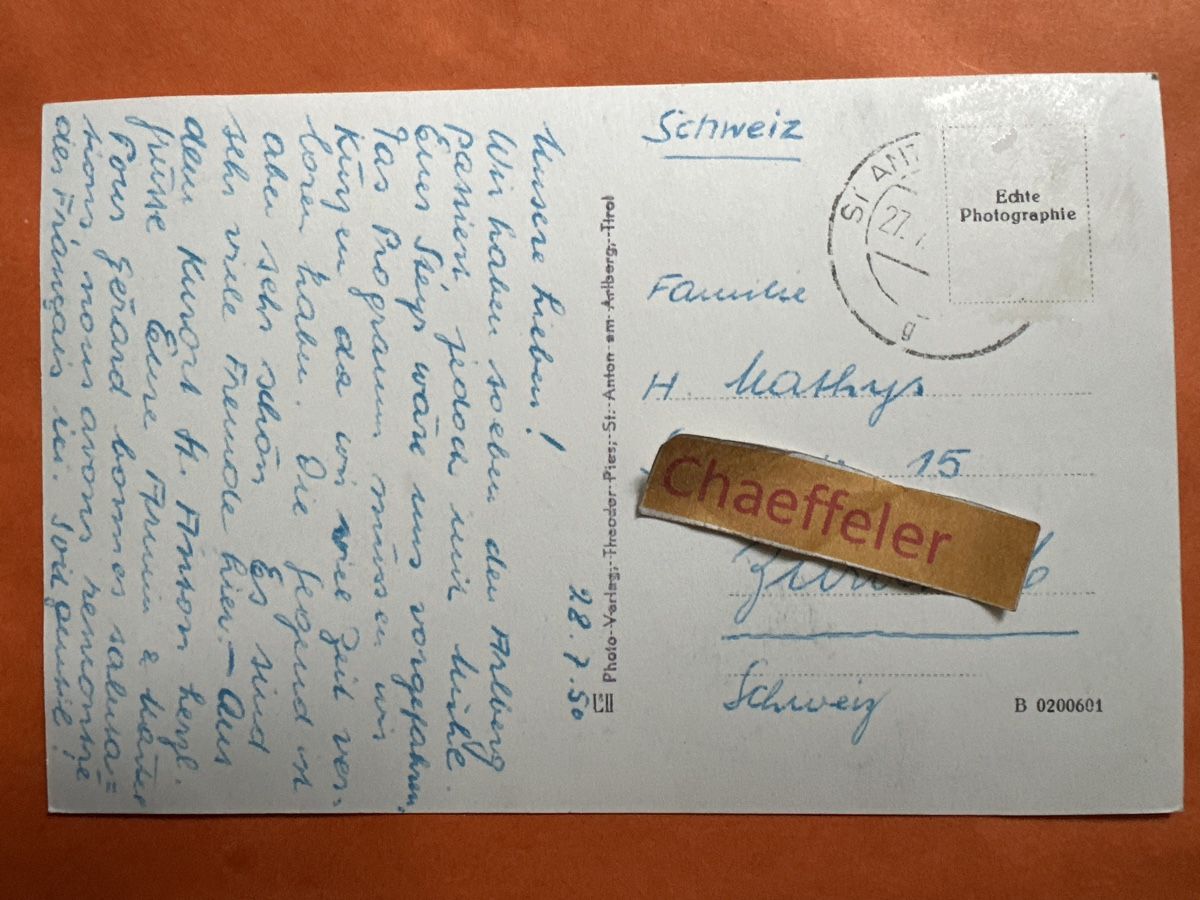 28.7.50
Unsere Lieben!
Wir haben soeben den Arlberg
passiert jedoch mit Mühe.
Euer Steyr wäre uns vorgefahren.
Das Programm müssen wir
kürzen da wir viel Zeit ver-
loren haben. Die Gegend ist
aber sehr schön. Es sind
sehr viele Fremde hier. — Aus
dem Kurort St. Anton herzl.
Grüsse Eure Armin &
Pour Gérard bonnes saluta=
tions nous avons rencontré
des Français ici. Soit gentil!
Photo-Verlag: Theodor Pies, St. Anton am Arlberg, Tirol
Schweiz
ST ANT
27.7.
g
Echte
Photographie
Familie
H. Mathys
15
Chaeffeler
Schweiz
B 0200601